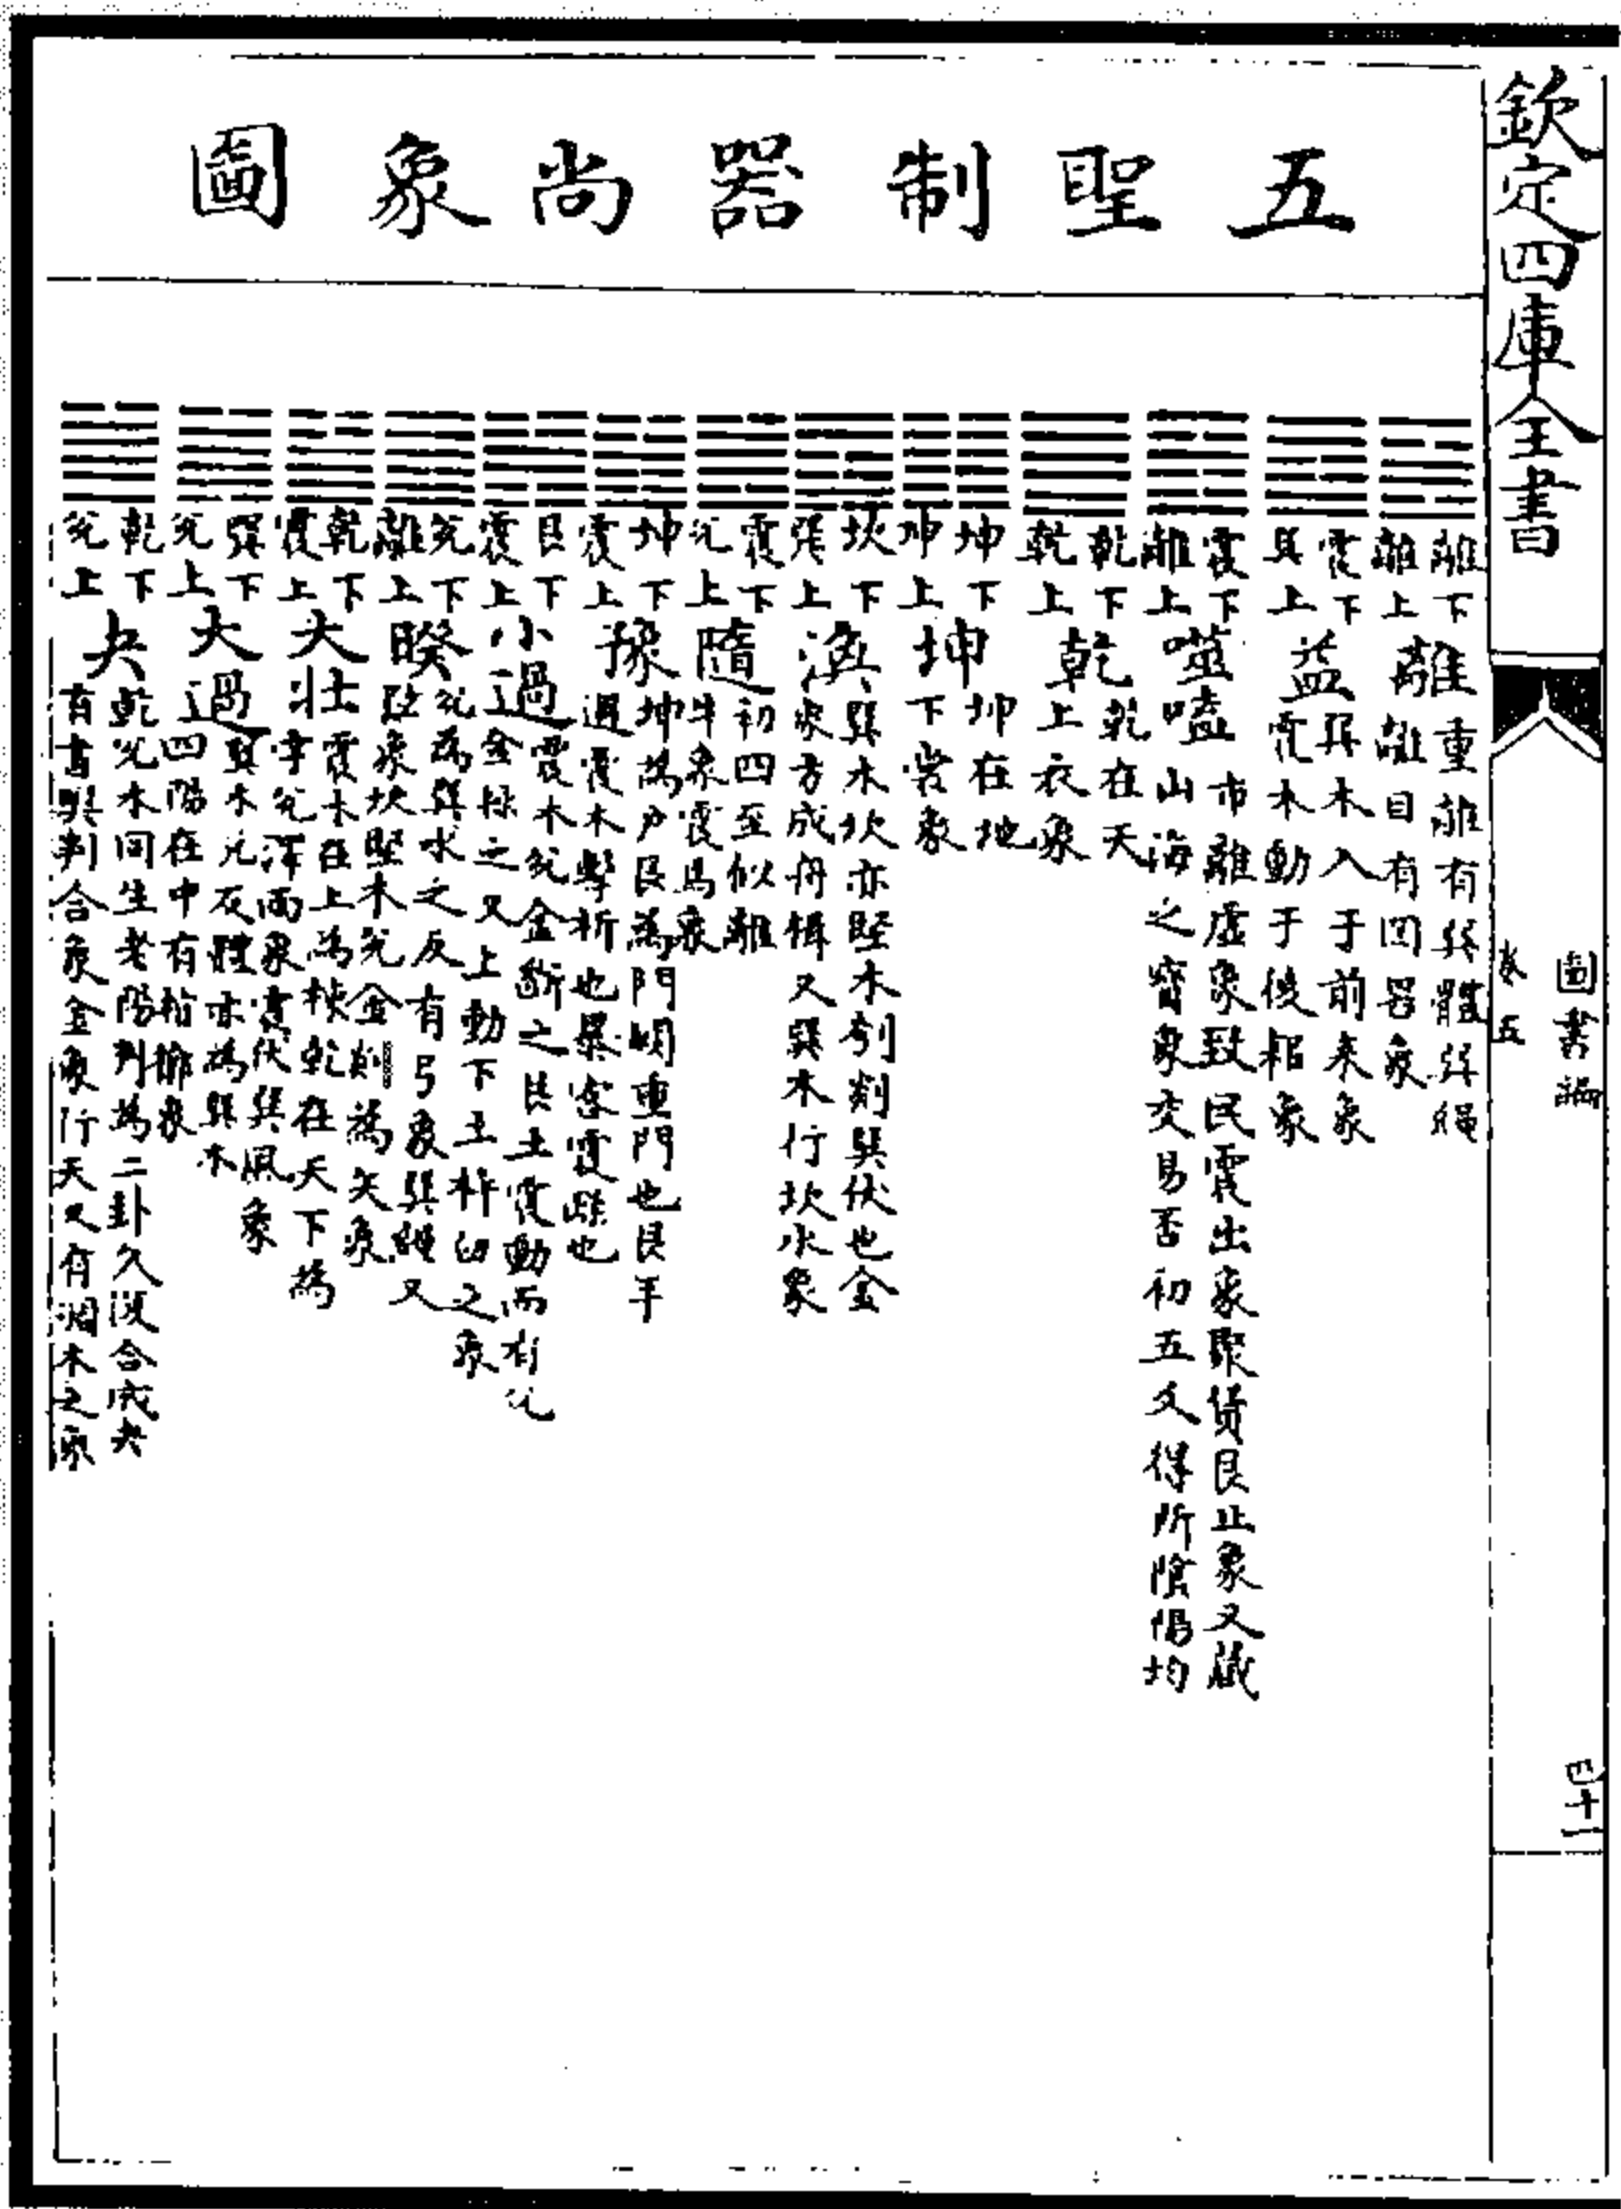 欽定四庫全書
圖書編
卷五
四十一
五聖制器尚象圖
離下
離上
離
重離有巽體巽繩
離目有罔罟象
震下
巽上
益
巽木入于前耒象
震木動于後耜象
震下
離上
噬嗑
市離虛象致民震出象聚貨艮止象又藏
山海之寶象交易否初五爻得所陰陽均
乾下
乾上
乾
乾在天
上衣象
坤下
坤上
坤
坤在地
下裳象
坎下
巽上
渙
巽木坎亦堅木刳剡巽伏也金
象方成舟楫又巽木行坎水象
震下
兌上
隨
初四至似離
牛象震馬象
坤下
震上
豫
坤為户艮為門闢重門也艮手
過震木擊柝也暴客震躁也
艮下
震上
小過
震木兌金斷之艮土震動而有兌
金掾之又上動下土杵臼之象
兌下
離上
睽
兌為巽水之反有弓象巽繩又
弦象坎堅木兌金剡為矢象
乾下
震上
大壯
震木在上為棟乾在天下為
宇兌澤雨象震伏巽風象
巽下
兌上
大過
巽木兌反體亦為巽木
四陽在中有棺槨象
乾下
兌上
夬
乾兌本同生老陽判為二卦久復合成夬
有書契判合象金象行天又有涸木之象